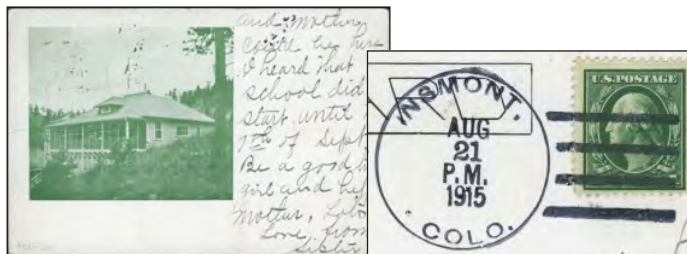 and mother
could be here
I heard that
school did
start until
7th of Sept
Be a good
girl and help
mother, Lots
Love from
Sister
INSMONT.
AUG
21
P.M.
1915
COLO.
U.S. POSTAGE